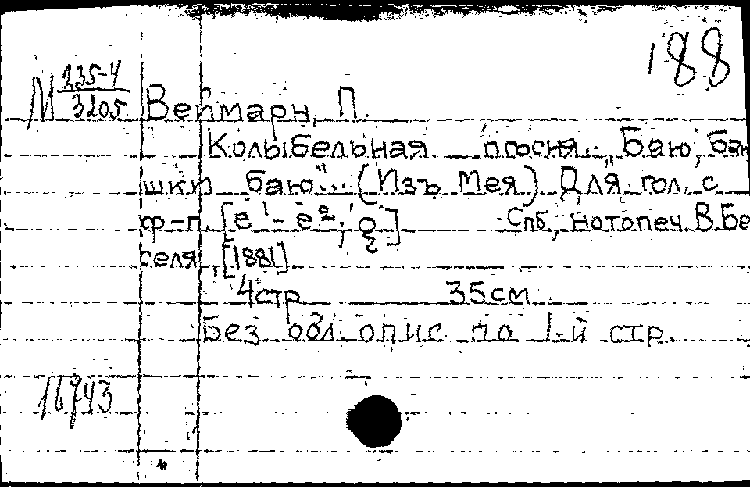 188
М 235-4/3205
Веймарн, П.
Колыбельная песня. „Баю, баю
шки баю"... (Изъ Мея) Для гол. с
ф-п. [e¹-e²; g]
Спб., нотопеч. В. Бе
селя, [1881]
4 стр 35 см.
Без обл. опис по 1-й стр.
16743